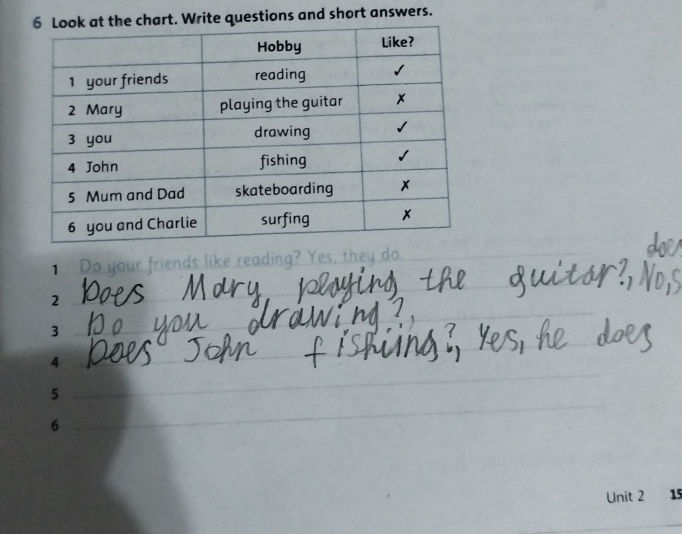 6 Look at the chart. Write questions and short answers.
Hobby Like?
1 your friends reading ✓
2 Mary playing the guitar ✗
3 you drawing ✓
4 John fishing ✓
5 Mum and Dad skateboarding ✗
6 you and Charlie surfing ✗
1 Do your friends like reading? Yes, they do.
does
2 Does Mary playing the guitar?, No, s
3 Do you drawing?,
4 Does John fishiing?, Yes, he does
5
6
Unit 2 15